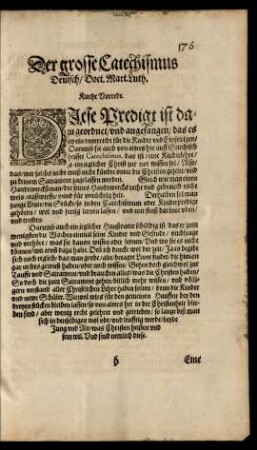 176
Der grosse Catechismus
Deutsch / Doct. Mart. Luth.
Kurtze Vorrede.
DIese Predigt ist da-
zu geordnet / vnd angefangen / das es
sey ein vnterricht für die Kinder vnd Einfeltigen /
Darumb sie auch von alters her auff Griechisch
heisset Catechismus, das ist / eine Kinderlehre /
so ein jglicher Christ zur not wissen sol / Also /
das / wer solchs nicht weis nicht künde vnter die Christen gezelet / vnd
zu keinem Sacrament zugelassen werden. Gleich wie man einen
Handwercksman / der seines Handwercksrecht vnd gebrauch nicht
weis / auswirffet / vnd für vntüchtig helt. Derhalben sol man
junge Leute / die Stücke so in den Catechismum oder Kinderpredigt
gehören / wol vnd fertig lernen lassen / vnd mit fleis darinne vben /
vnd treiben.
Darumb auch ein jglicher Hausvater schüldig ist / das er zum
wenigsten die Wochen einmal seine Kinder vnd Gesinde / vmbfrage
vnd verhöre / was sie dauon wissen oder lernen / Vnd wo sie es nicht
können / mit ernst dazu halte. Denn ich dencke wol der zeit / Ja es begibt
sich noch teglich / das man grobe / alte betagte Leute findet / die hieuon
gar nichts gewust haben / oder noch wissen / Gehen doch gleichwol zur
Tauffe vnd Sacrament / vnd brauchen alles / was die Christen haben /
So doch die zum Sacrament gehen billich mehr wissen / vnd völli-
gern verstand aller Christlichen Lehre haben solten / denn die Kinder
vnd newe Schüler / Wiewol wirs für den gemeinen Hauffen bey den
dreyen stücken bleiben lassen / so von alters her in der Christenheit blie-
ben sind / aber wenig recht geleret vnd getrieben / so lange bis man
sich in denselbigen wol vbe / vnd leufftig werde / beyde
Jung vnd Alt / was Christen heissen vnd
sein wil. Vnd sind nemlich diese.
h Eine